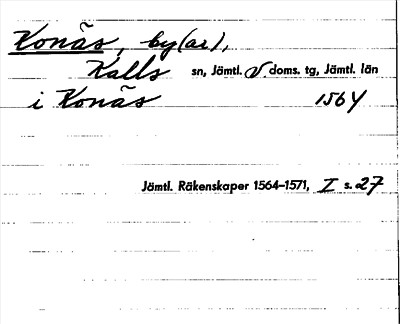 Konäs, by(ar),
Kalls sn, Jämtl. V doms. tg, Jämtl. län
i Konäs 1564
Jämtl. Räkenskaper 1564–1571, I s. 27